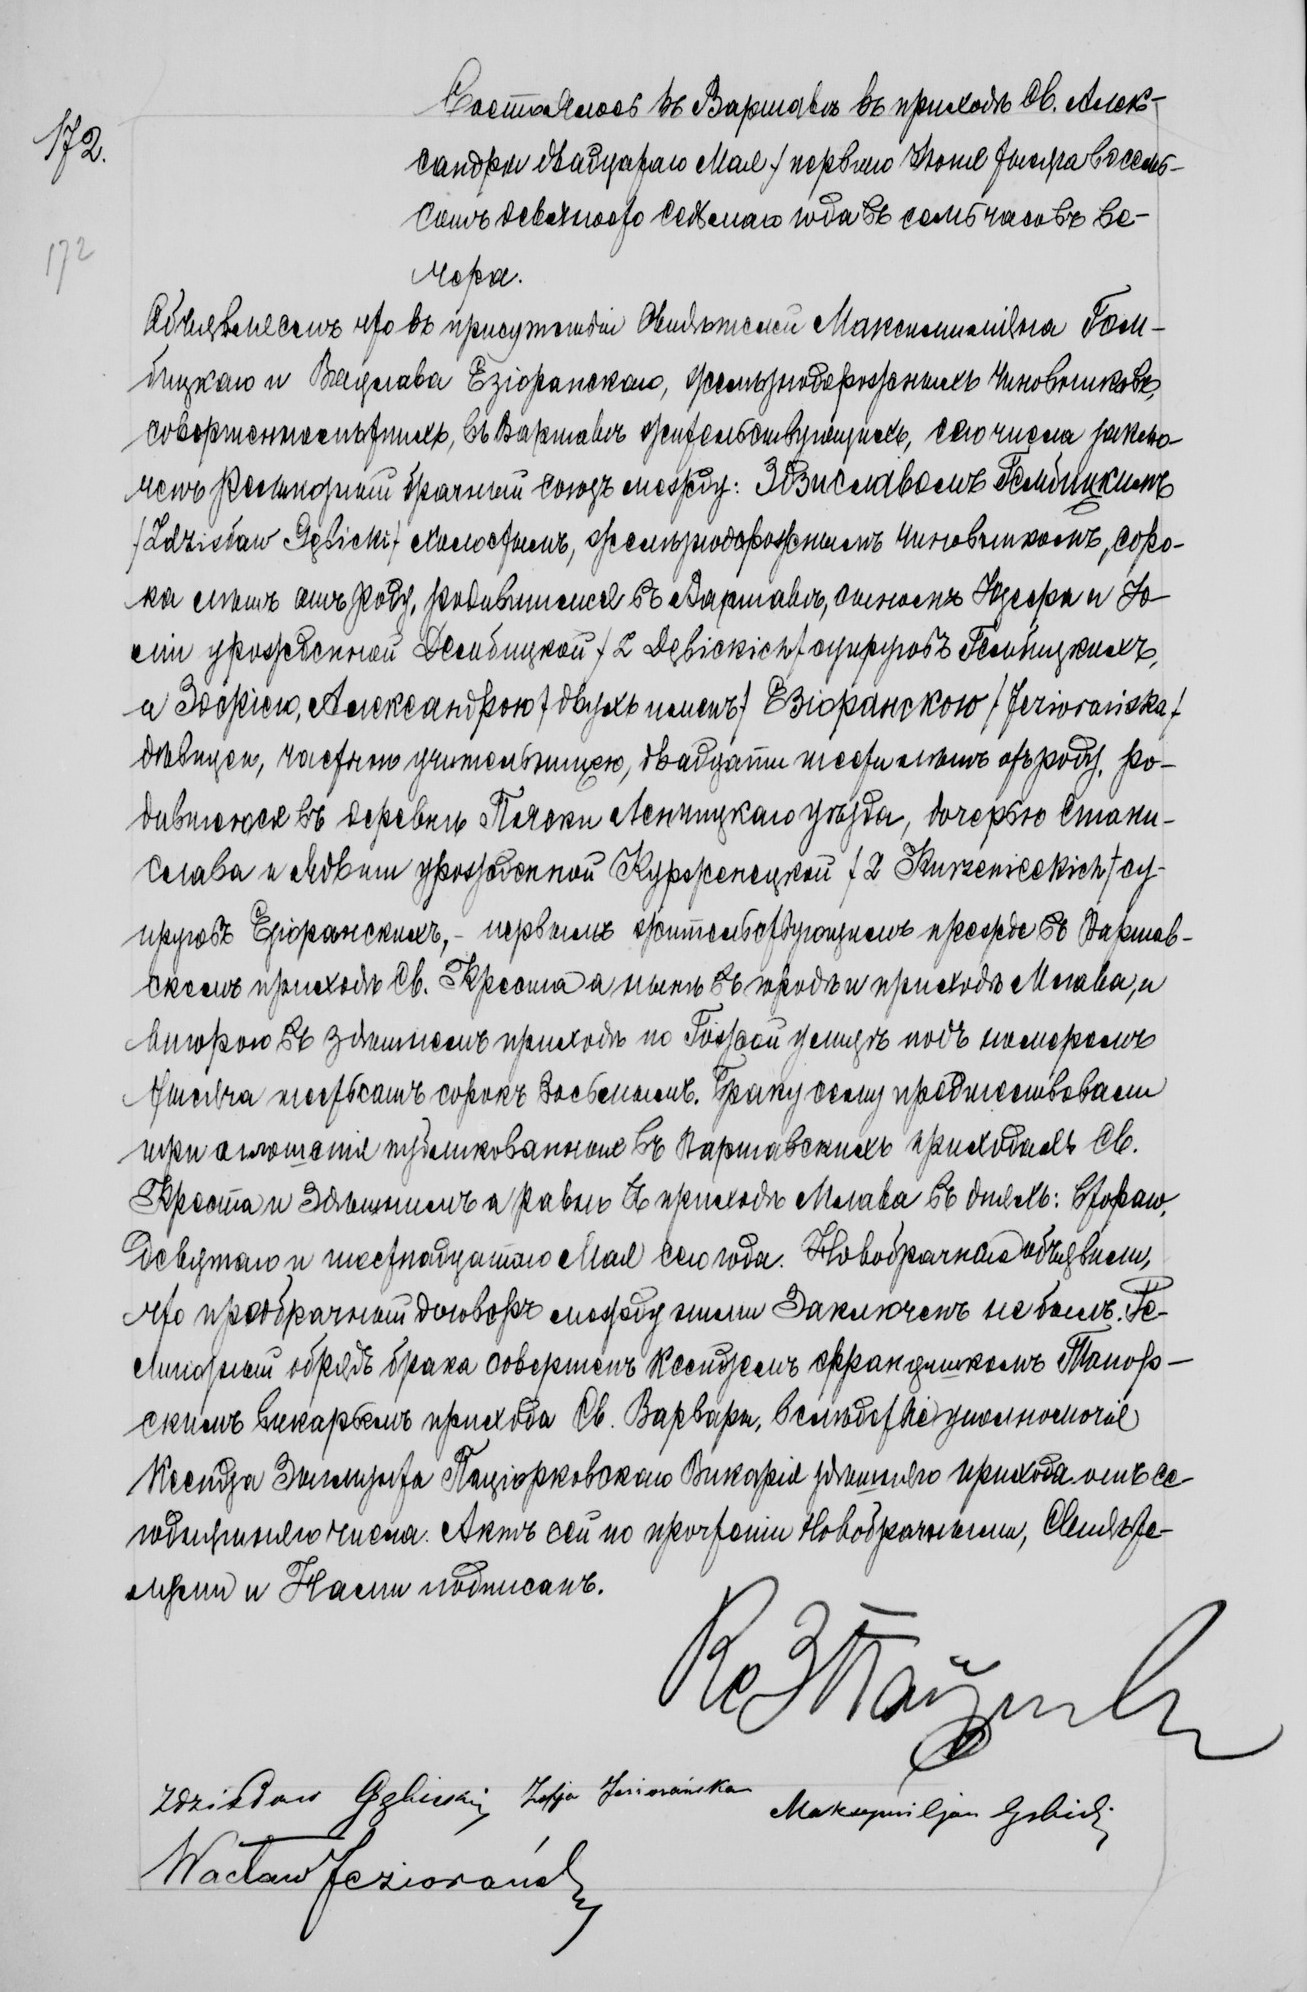 172.
172
Состоялось въ Варшавѣ въ приходѣ Св. Алек-
сандра двадцатаго Мая / перваго Іюня тысяча восемь-
сотъ девяносто седьмаго года въ семь часовъ ве-
чера.
Объявляемъ что въ присутствіи Свидѣтелей Максимиліяна Гем-
бицкаго и Вацлава Езіоранскаго, желѣзнодорожныхъ чиновниковъ,
совершеннолѣтнихъ, въ Варшавѣ жительствующихъ, сего числа заклю-
ченъ религіозный брачный союзъ между: Здзиславомъ Гембицкимъ
/Zdzisław Gębicki/ холостымъ, желѣзнодорожнымъ чиновникомъ, соро-
ка лѣтъ отъ роду, родившимся въ Варшавѣ, сыномъ Іозефа и Ю-
ліи урожденной Дембицкой / z Dębickich / супруговъ Гембицкихъ,
и Зофіею, Александрою / двухъ именъ / Езіоранскою / Jeziorańska /
дѣвицею, частною учительницею, двадцати шести лѣтъ отъ роду, ро-
дившеюся въ деревнѣ Печски Ленчицкаго уѣзда, дочерью Стани-
слава и Ядвиги урожденной Курженецкой / z Kurzenieckich / су-
пруговъ Езіоранскихъ, - первымъ жительствующимъ прежде въ Варшав-
скомъ приходѣ Св. Креста а нынѣ въ городѣ и приходѣ Млава, и
второю въ здѣшнемъ приходѣ по Гожей улицѣ подъ номеромъ
тысяча шестьсотъ сорокъ восьмымъ. Браку сему предшествовали
три оглашенія публикованныя въ Варшавскихъ приходахъ Св.
Креста и Здѣшнемъ а равно въ приходѣ Млава въ дняхъ: втораго,
девятаго и шестнадцатаго Мая сего года. Новобрачные объявили,
что предбрачный договоръ между ними Заключенъ не былъ. Ре-
лигіозный обрядъ брака совершенъ Ксендзомъ Францишкомъ
скимъ викаріемъ прихода Св. Варвары, вслѣдствіе уполномочія
Ксендза Зыгмунта Паціорковскаго Викарія здѣшняго прихода отъ се-
годняшняго числа. Актъ сей по прочтеніи Новобрачными, Свидѣте-
лями и Нами подписанъ.
Кс З
Zdzisław Gębicki Zofja Jeziorańska Maksymiljan Gębicki
Wacław Jeziorański